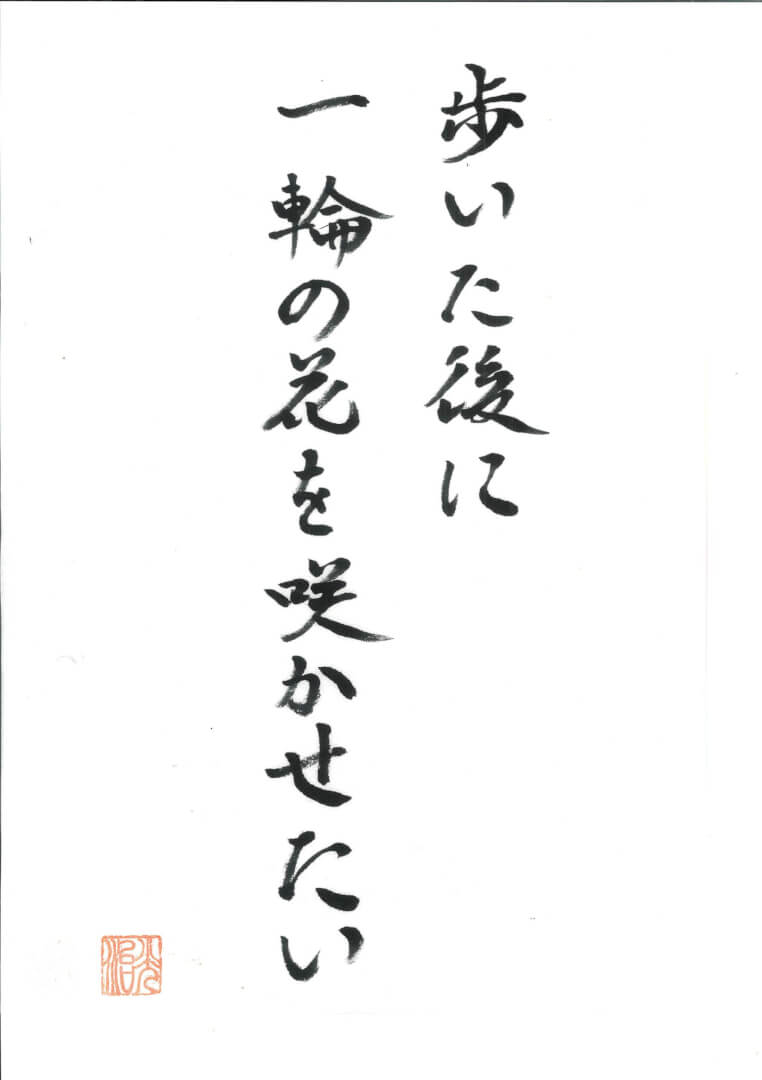 歩いた後に
一輪の花を咲かせたい